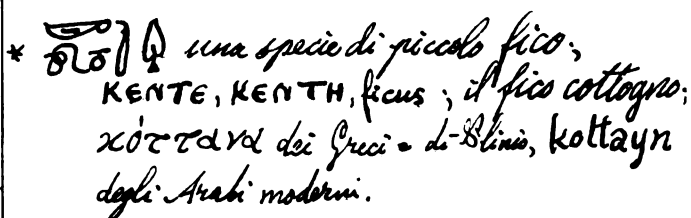 * una specie di piccolo fico;
KENTE, KENTH, ficus; il fico cottogno;
κόττανα dei Greci e di Plinio, kottayn
degli Arabi moderni.